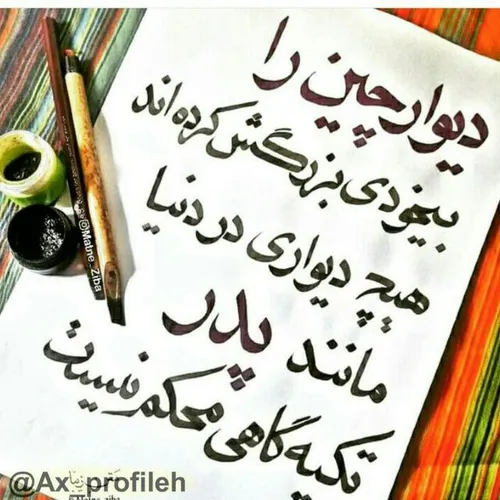 دیوار چین را
بیخودی بزرگش کرده اند
هیچ دیواری در دنیا
مانند پدر
تکیه گاهی محکم نیست
@Matne_Ziba
@Ax_profileh